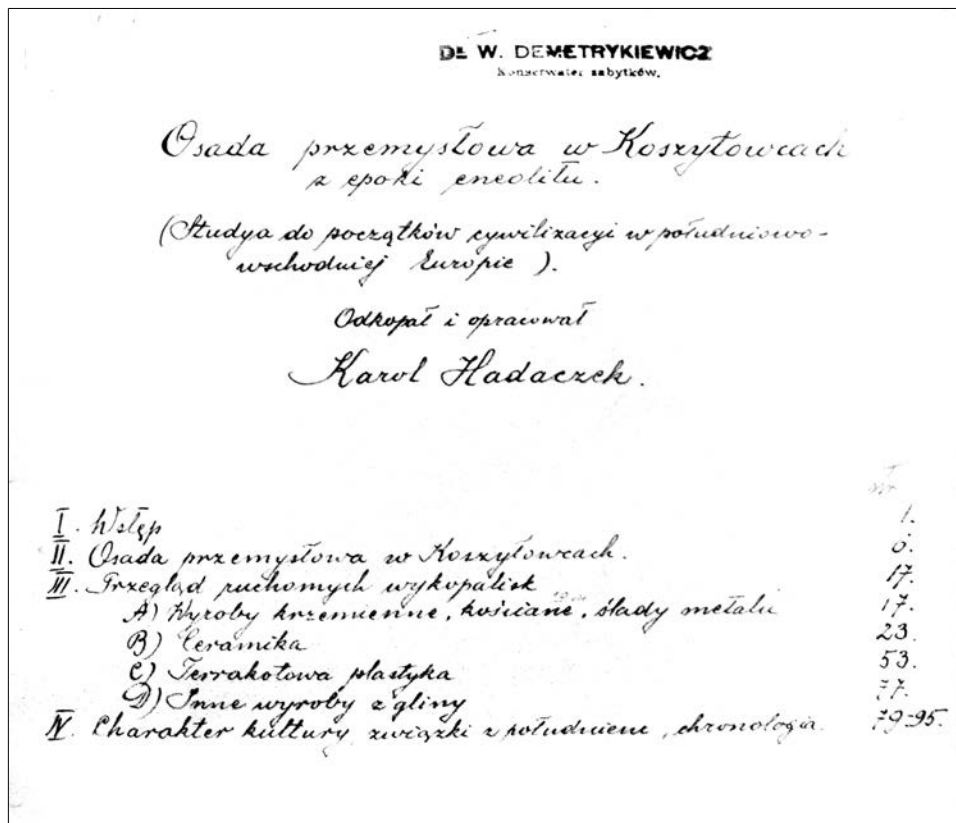 Dr W. DEMETRYKIEWICZ
Konserwator zabytków.
Osada przemysłowa w Koszyłowcach
z epoki eneolitu.
(Studya do początków cywilizacyi w południowo-
wschodniej Europie).
Odkopał i opracował
Karol Hadaczek.
str.
I. Wstęp 1.
II. Osada przemysłowa w Koszyłowcach. 6.
III. Przegląd ruchomych wykopalisk 17.
A) Wyroby krzemienne, kościane, ślady metalu 17.
B) Ceramika 23.
C) Terrakotowa plastyka 53.
D) Inne wyroby z gliny 77.
IV. Charakter kultury, związki z południem, chronologia. 79-95.